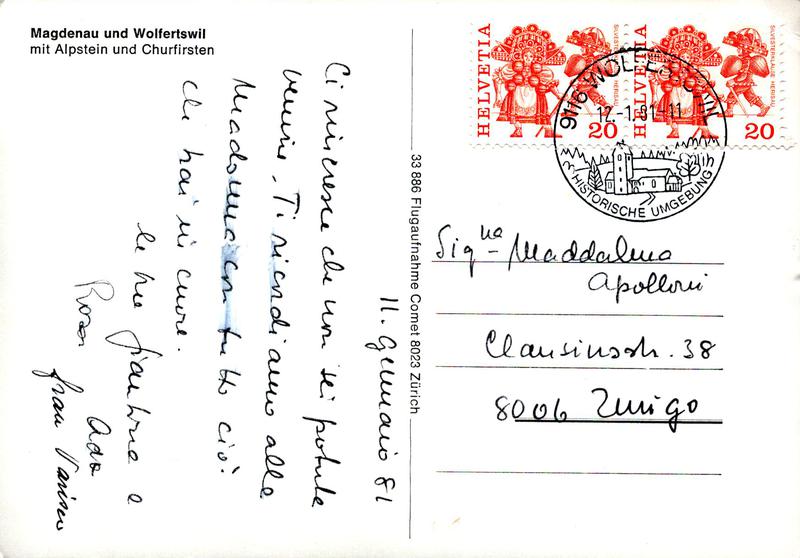 Magdenau und Wolfertswil
mit Alpstein und Churfirsten
HELVETIA
SILVESTERKLÄUSE HERISAU
20
HELVETIA
SILVESTERKLÄUSE HERISAU
20
9116 WOLFERTSWIL
12.-1.81-11
HISTORISCHE UMGEBUNG
33 886 Flugaufnahme Comet 8023 Zürich
11. gennaio 81
Ci rincresce che non sei potuta
venire. Ti ricordiamo alla
Madonna con tutto ciò
che hai in cuore.
le tue Giantina e
Rosa
Ada
Sig.na Maddalena
Apolloni
Clausiusstr. 38
8006 Zurigo